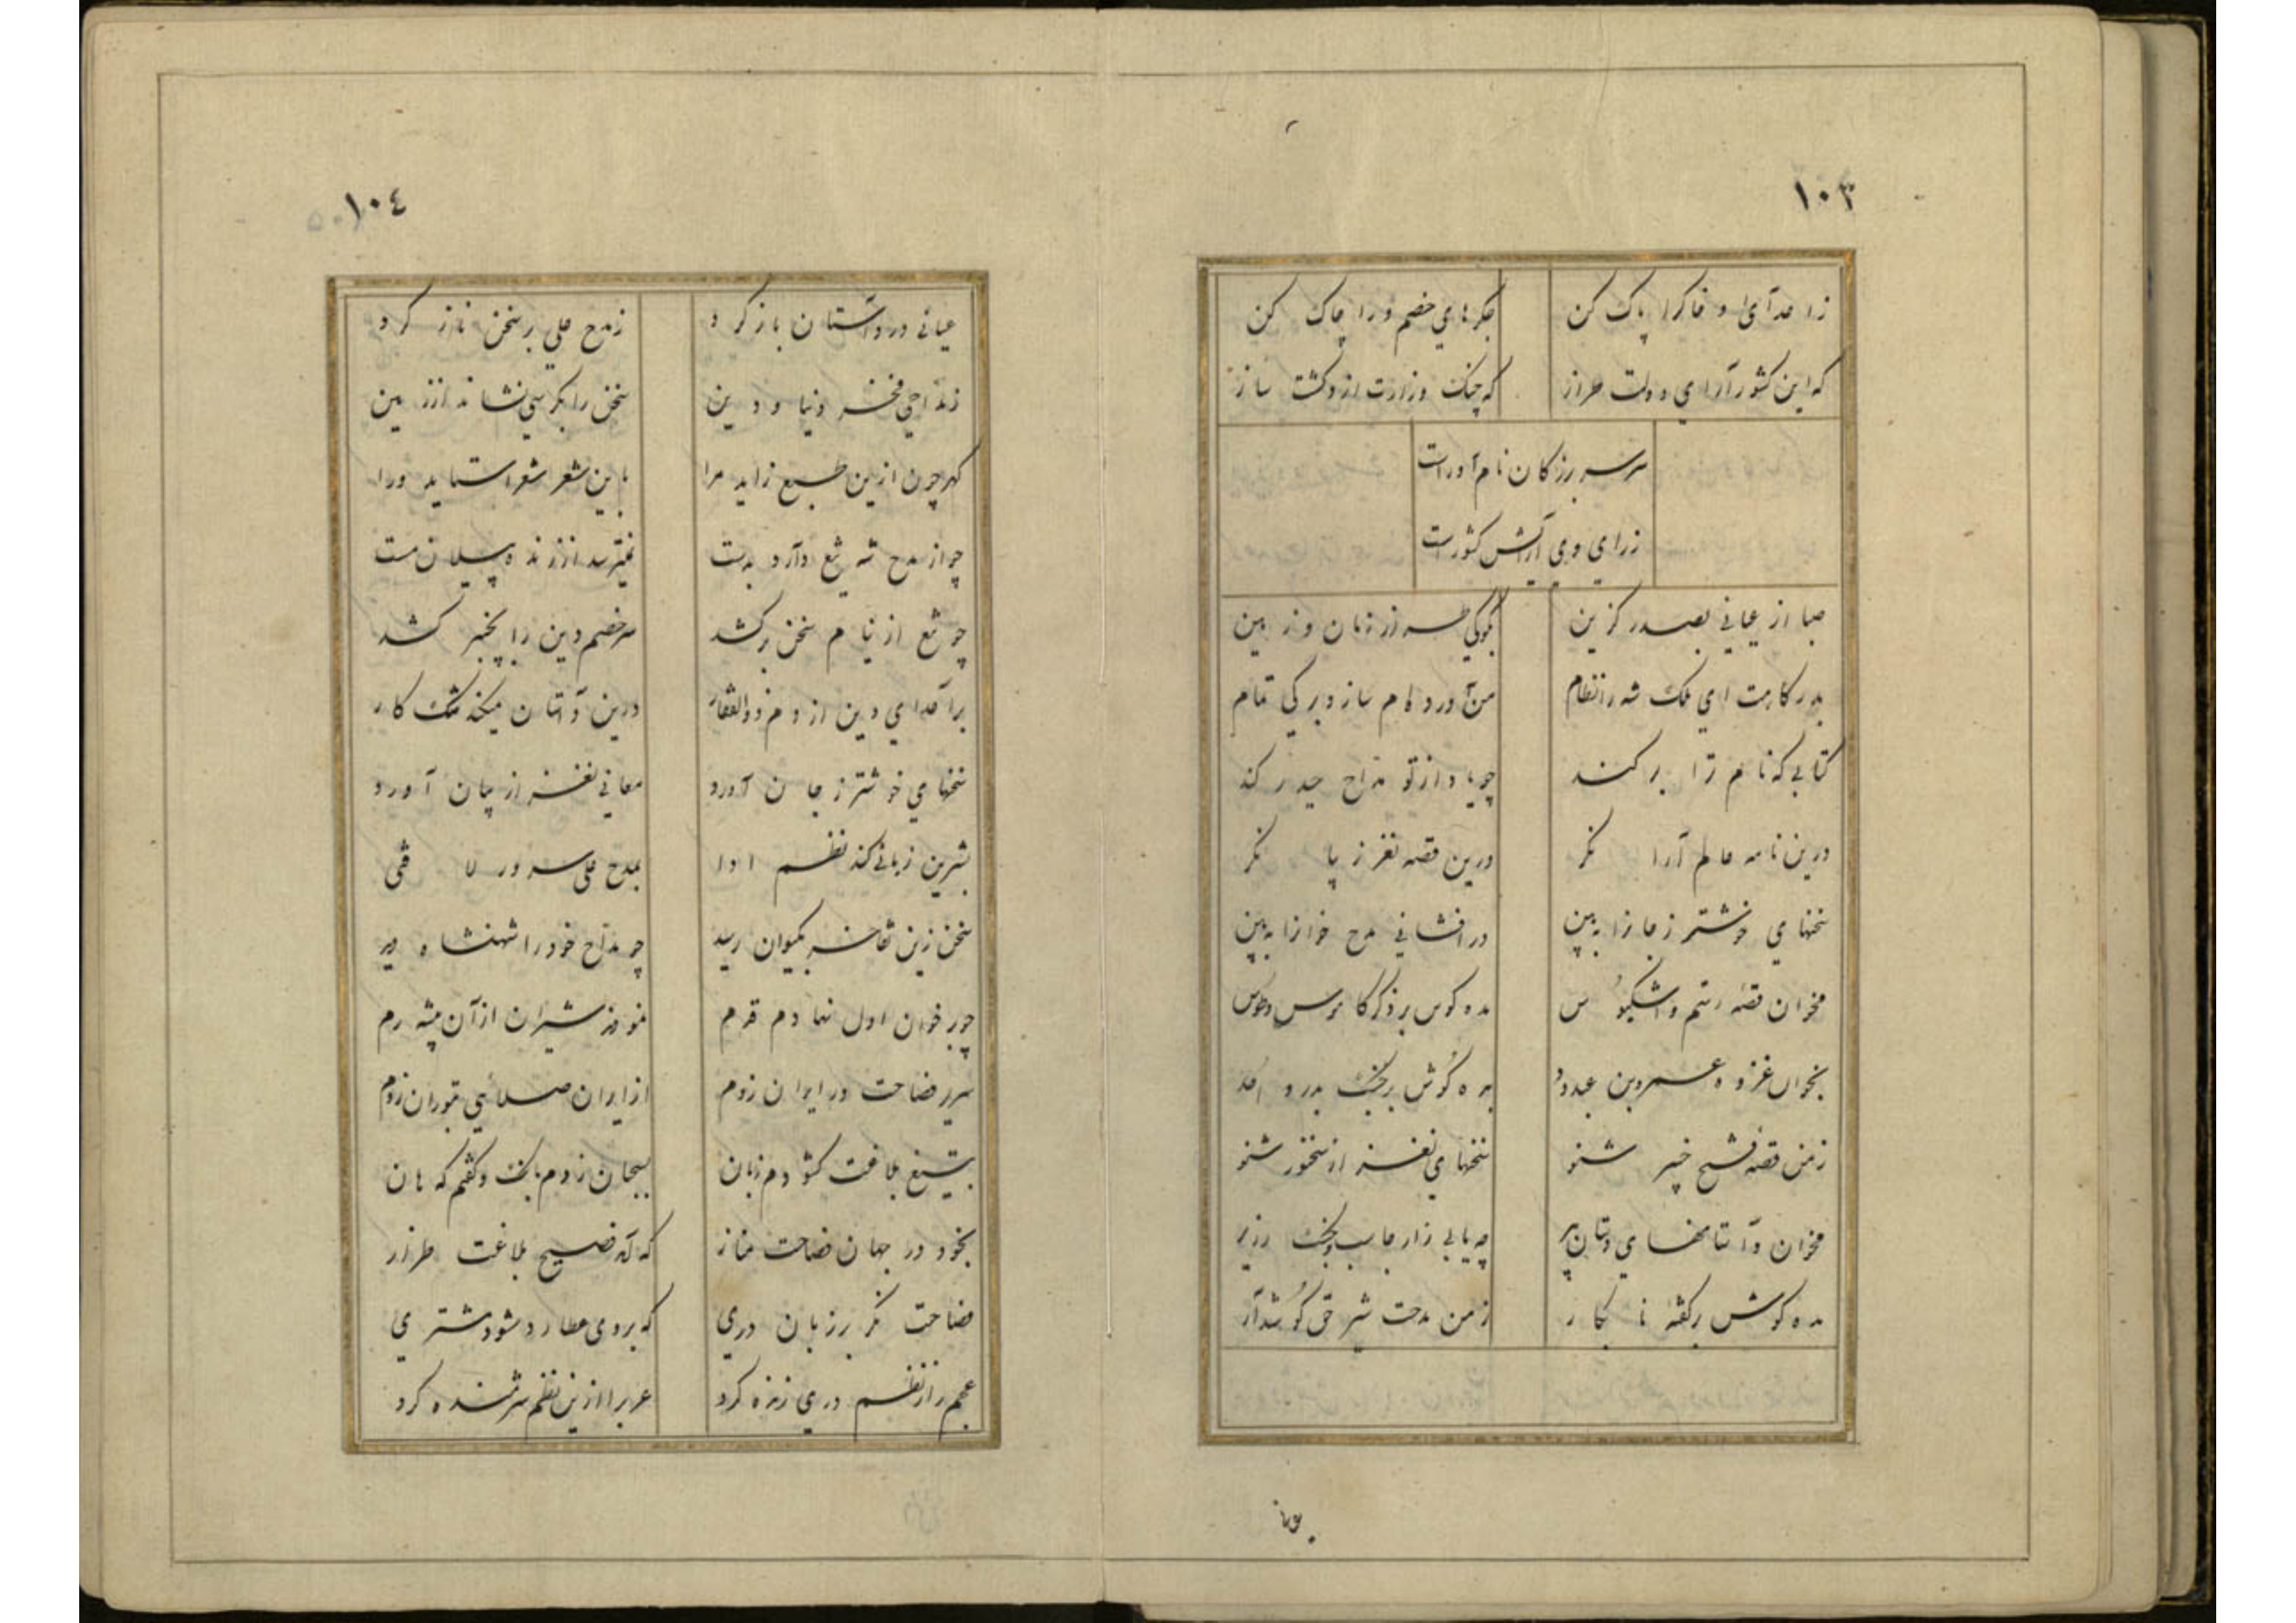 ١٠٣
ز اعدای او خاکرا پاک کن جکرهای خصم ورا چاک کن
که این کشور آرای دولت طراز که چنک وزارت ازو کشت ساز
سر سر بزرکان نام آورست
ز رای وی آرایش کشورست
صبا از عیانی بصدر کزین بکوی زمان و زمین
بدرکاهت ای ملک شه را نظام من آورده‌ام ساز و برکی تمام
کتابی که نام ترا بر کند چو یاد از تو مداح حیدر کند
درین نامه عالم آرا نکر درین قصه نغز زیبا نکر
سخنهای خوشتر ز جانرا ببین در افشانی مدح خوانرا ببین
مخوان قصه رستم و اشکبوس مده کوش بر ذکر کاموس و طوس
بخوان غزوه عمرو بن عبدود بده کوش بر جنک بدر و احد
ز من قصه فتح خیبر شنو سخنهای نغز از سخنور شنو
مخوان داستانهای دستان پیر چه یابی ز ارجاسب و جنک زریر
مده کوش بر کفته نابکار ز من مدحت شیر حق کوش دار
١٠٤
عیانی در داستان باز کرد ز مدح علی بر سخن ناز کرد
ز مداحی فخر دنیا و دین سخن را بکرسی نشاند از زمین
کهر چون ازین طبع زاید مرا باین شعر شعرا ستاید ورا
چو از مدح شه تیغ دارد بدست نمیترسد از زنده پیلان مست
چو تیغ از نیام سخن بر کشد سر خصم دین را بخنجر کشد
بر اعدای دین از دم ذوالفقار درین داستان میکند تنک کار
سخنهای خوشتر ز جان آورد معانی نغز از بیان آورد
بشیرین زبانی کند نظم ادا بمدح علی سرور لا فتی
سخن زین تفاخر بکیوان رسید چو مداح خود را شهنشاه دید
چو بر خوان اول نهادم قدم نمودند شیران از آن بیشه رم
سریر فصاحت در ایران زدم از ایران صلائی بتوران زدم
بتیغ بلاغت کشودم زبان بسحبان زدم بانک و کفتم که هان
بخود در جهان فصاحت مناز که آمد فصیح بلاغت طراز
فصاحت نکر بر زبان دری که بر وی عطارد شود مشتری
عجم را ز نظم دری زنده کرد عرب را ازین نظم شرمنده کرد